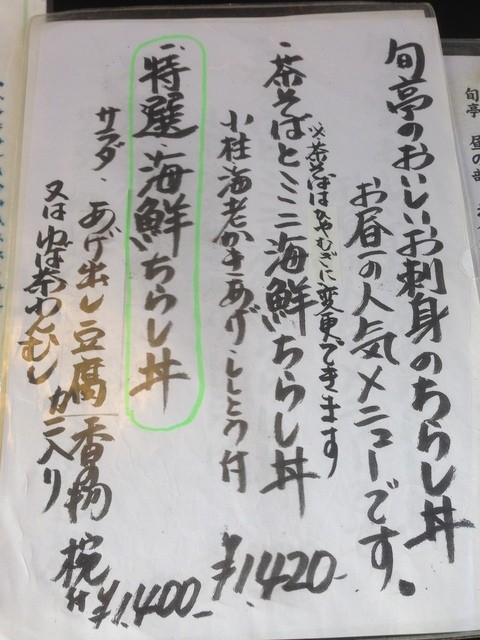 旬亭のおいしいお刺身のちらし丼
お昼の人気メニューです。
※茶そばはひやむぎに変更できます
・茶そばとミニ海鮮ちらし丼
小柱海老かきあげ、ししとう付
¥1420-
・特選海鮮ちらし丼
サラダ、あげ出し豆腐 香物
又はゆば茶わんむし カニ入り椀付
¥1400-
旬亭 昼の部